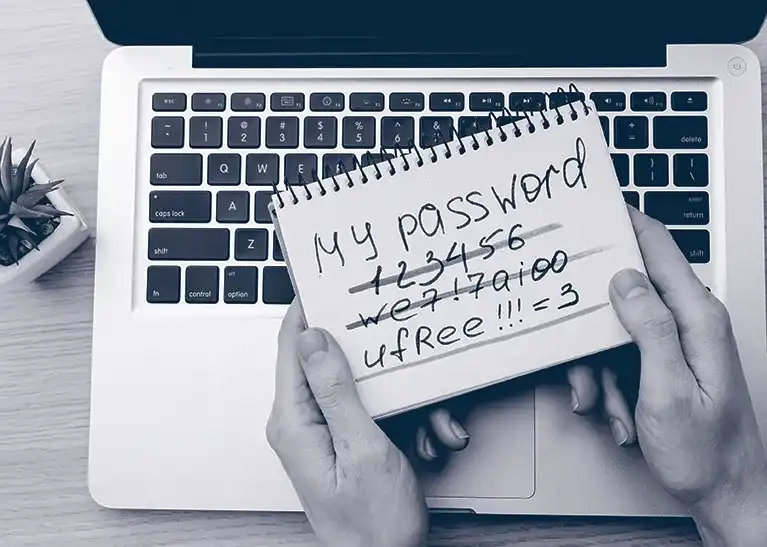 esc F1 F2 F3 F4 F5 F6 F7 F8
~ ! 1 @ 2 # 3 $ 4 % 5 ^ 6 & + = delete
tab Q W E } ] | \
caps lock A enter return
shift Z shift
fn control alt option
My password
123456
we7!7aioo
ufRee!!!=3